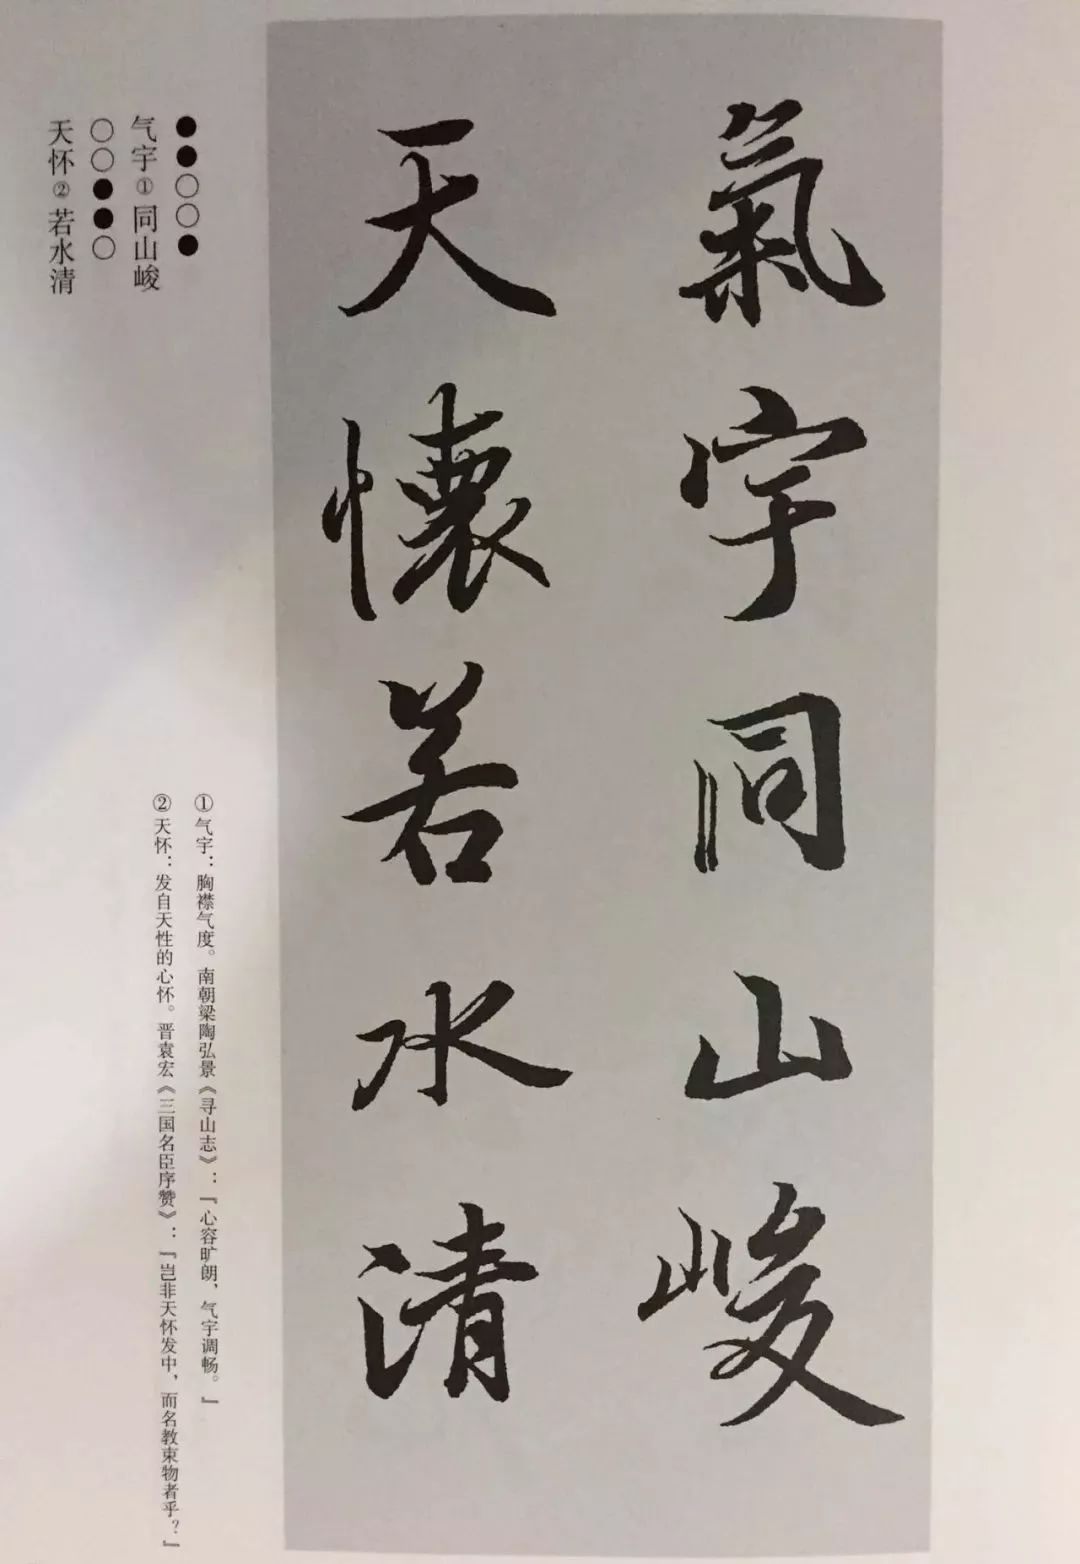 氣宇同山峻
天懷若水清
●●○○●
气宇①同山峻
○○●●○
天怀②若水清
①气宇：胸襟气度。南朝梁陶弘景《寻山志》：「心容旷朗，气宇调畅。」
②天怀：发自天性的心怀。晋袁宏《三国名臣序赞》：「岂非天怀发中，而名教束物者乎？」